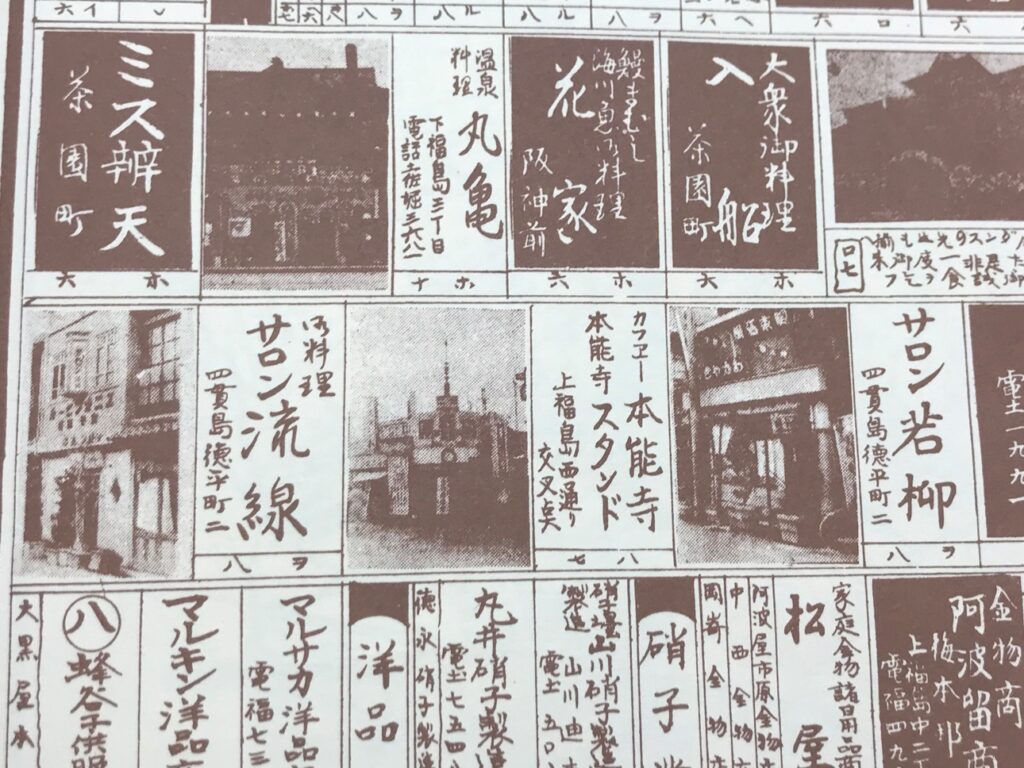 大衆御料理
入船
茶園町
ホ 六
鰻まむし
海川魚御料理
花家
阪神前
ホ 六
温泉
料理
丸亀
下福島三丁目
電話土佐堀三六八一
ホ 十
ミス辨天
茶園町
ホ 六
ロ七
サロン若柳
四貫島徳平町二
ヲ 八
カフエー本能寺
本能寺スタンド
上福島西通り
交叉点
八 七
御料理
サロン流線
四貫島徳平町二
ヲ 八
金物商
阿波留商
梅本
上福島中二
電福四九
家庭金物諸日用品商
松屋
阿波屋市原金物
中西金物
岡崎金物
硝子
山川硝子製造
製造 山川
電土 五〇
丸井硝子製
電土七五四
徳永硝子製造
洋品
マルサカ洋品
電福七三
マルキン洋品
八
蜂谷子供服
大黒屋